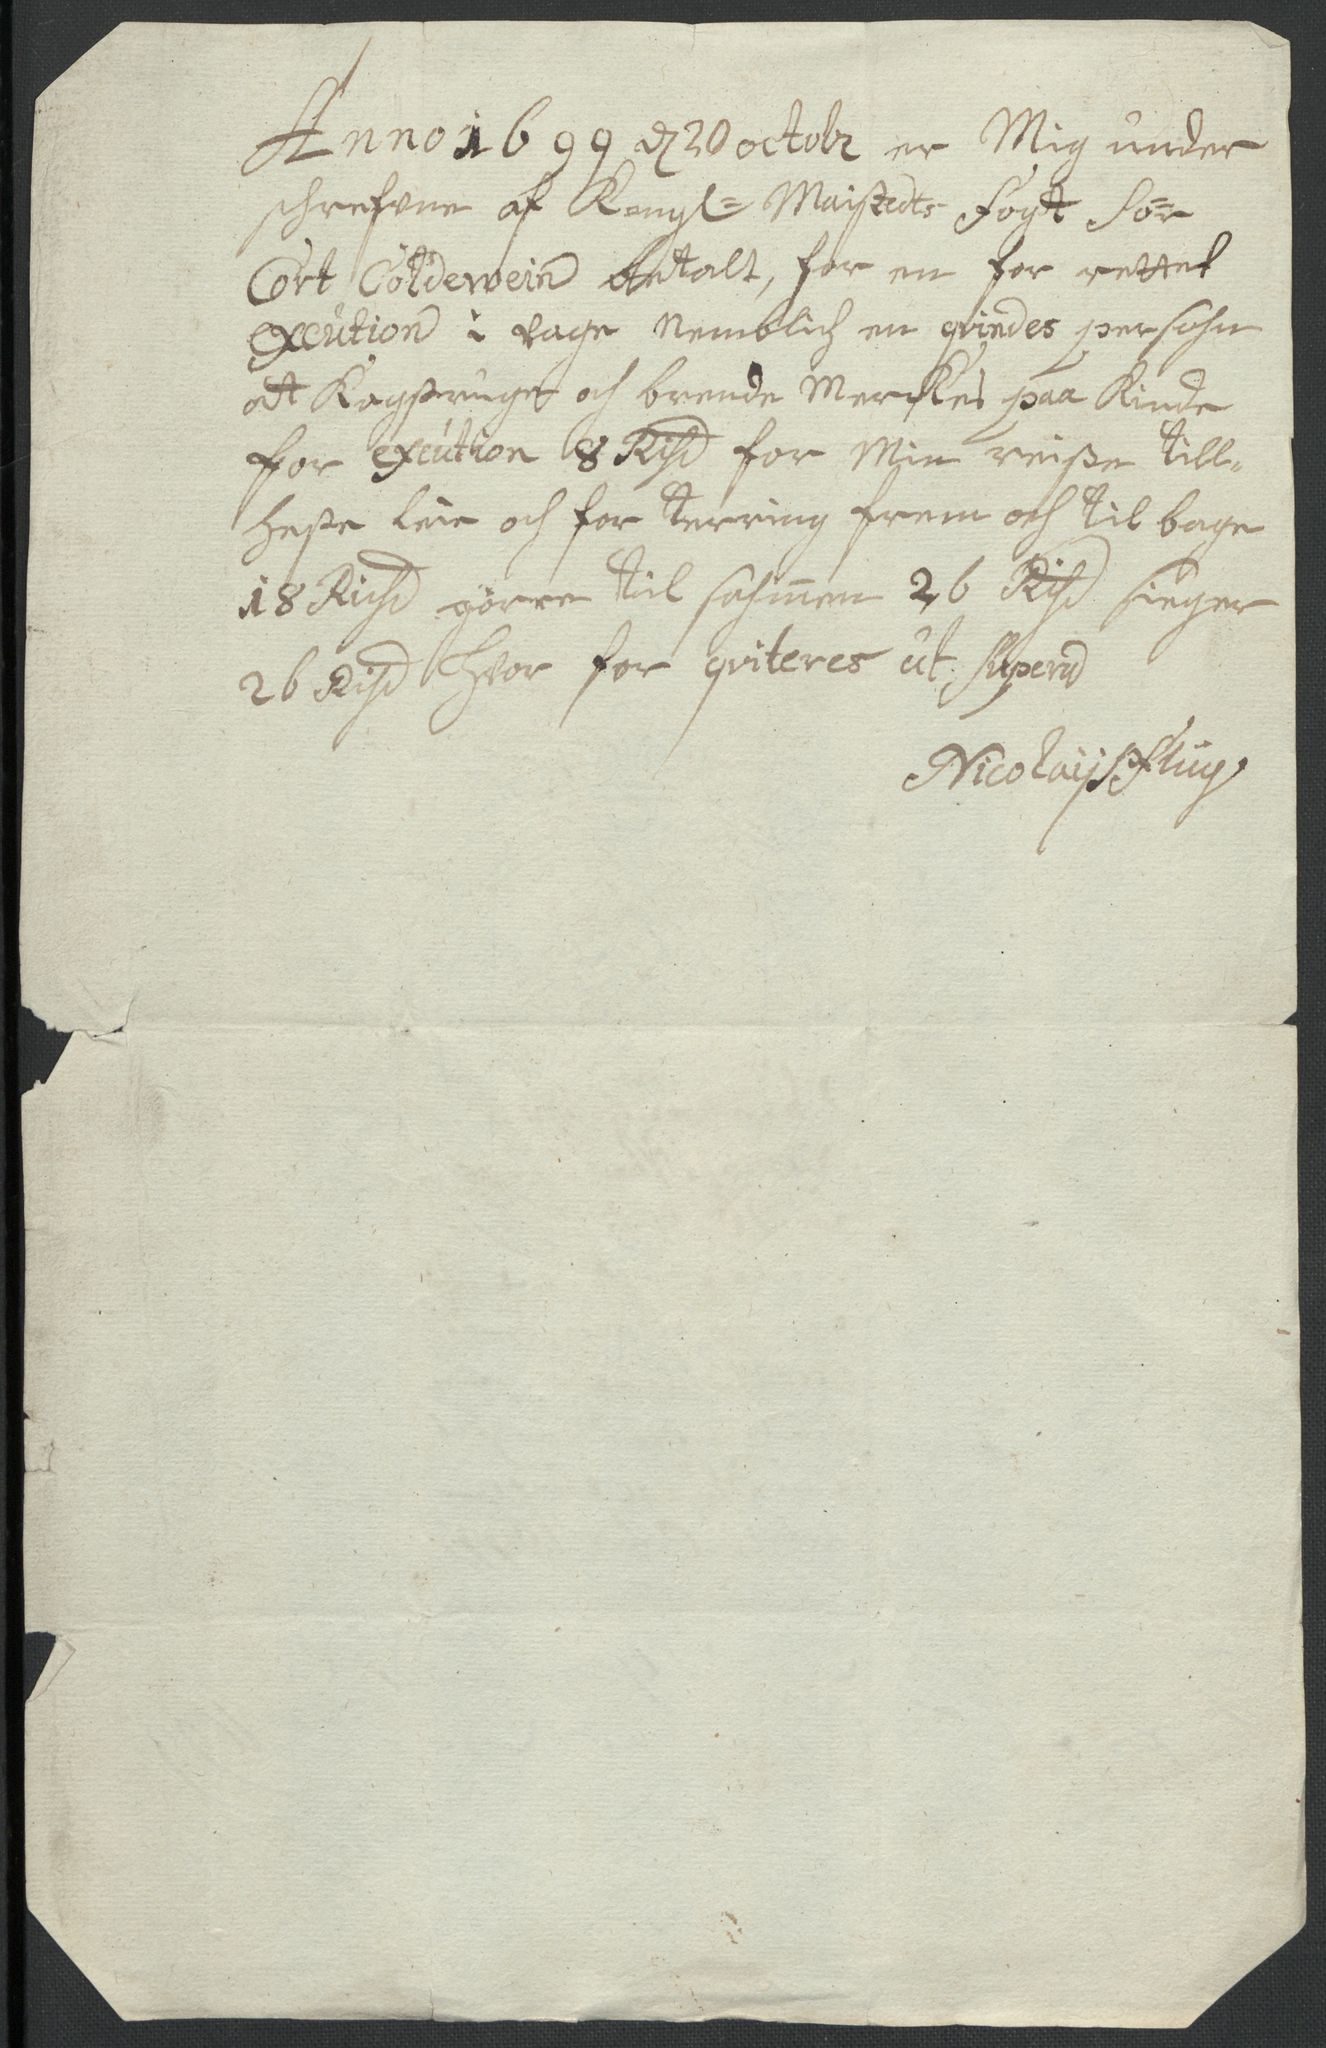 Anno 1699 d 20 octobr er Mig under
schrefvne af Kongl= Maisteds fogt Sör
Cort Cöldewein betalt, for en for rettet
Execution i dage Nemblich en qvindes persohn
att Kagstruget och brende Merckes paa Kinde
for Execution 8 Rixd for Min reiße till=
heste leie och for terring frem och til bage
18 Rixd görre til sahmen 26 Rixd sieger
26 Rixd hvor for qviteres ut supera
Nicolaij Flüg